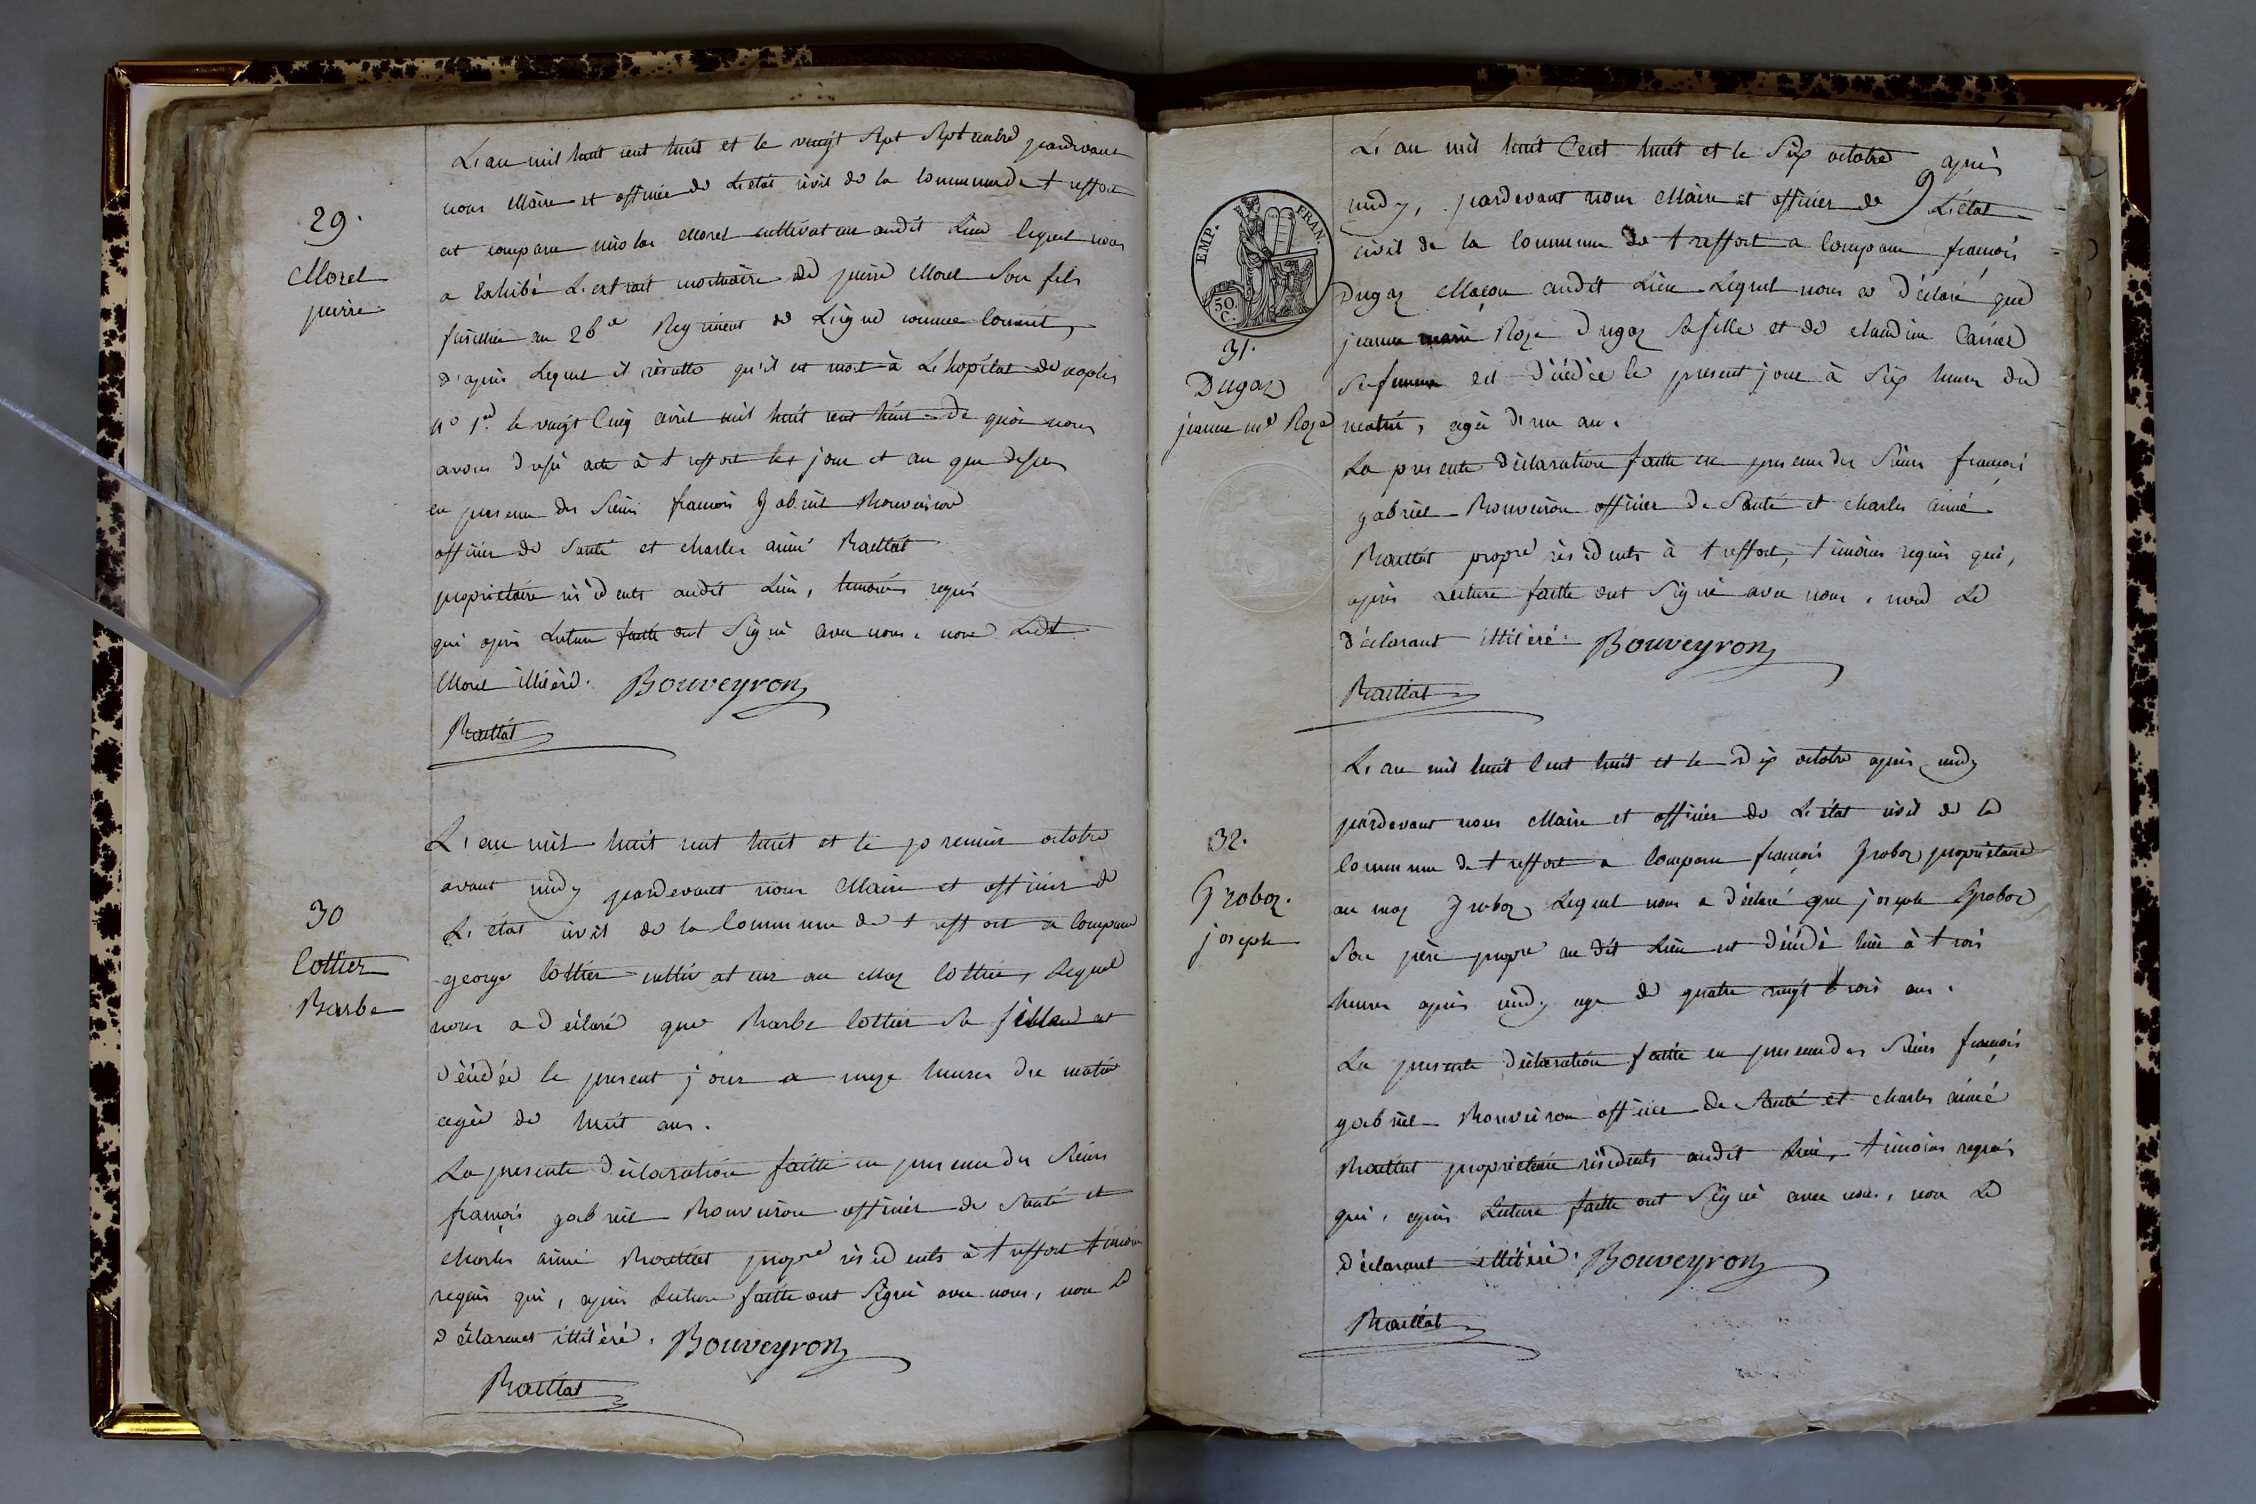 29.
Morel
pierre
L'an mil huit cent huit et le vingt sept septembre pardevant
nous Maire et officier de L'état civil de la commune de treffort
est comparu nicolas Morel cultivateur audit Lieu lequel nous
a Exhibé L'extrait mortuaire de pierre Morel Son fils
fusillier au Regiment de Ligne
d'après Lequel il résulte qu'il est mort à L'hopital de naples
n° 1er le vingt Cinq avril mil huit cent huit de quoi nous
avons dressé acte à treffort les jour et an que dessus
en presence des Sieurs francois gabriel Bouveiron
officier de Santé et charles aimé Raillat
proprietaire résidents audit Lieu, temoins requis
qui après Lecture faite ont Signé avec nous, non Ledt
Morel illitéré. Bouveyron
Raillat
30
Cottier
Barbe
L'an mil huit cent huit et le premier octobre
avant midy pardevant nous Maire et officier de
L'état civil de la Commune de treffort a comparu
george Cottier cultivateur au Maz Cottier, Lequel
nous a déclaré que Barbe Cottier Sa fille est
décédée le present jour a onze heures du matin
agée de huit ans.
La presente déclaration faitte en presence des Sieurs
françois gabriel Bouveiron officier de Santé et
charles aimé Raillat propre résidents à treffort témoins
requis qui, après Lecture faitte ont Signé avec nous, non Le
déclarant illitéré. Bouveyron
Raillat
EMP. FRAN.
50 C.
31.
Dugaz
jeanne me Roze
L'an mil huit Cent huit et le Six octobre après
midy, pardevant nous Maire et officier de L'état
civil de la Commune de treffort a Comparu françois
Dugaz Maçon audit Lieu Lequel nous a déclaré que
jeanne marie Roze Dugaz Sa fille et de claudine
Sa femme est décédée le present jour à Six heures du
matin, agée d'un an.
La presente déclaration faitte en presence des Sieurs françois
gabriel Bouveiron officier de Santé et charles aimé
Raillat propre résidents à treffort, témoins requis qui,
après Lecture faitte ont Signé avec nous, non Le
déclarant illitéré. Bouveyron
Raillat
32.
Groboz.
joseph
L'an mil huit Cent huit et le dix octobre après midy
pardevant nous Maire et officier de L'état civil de la
Commune de treffort a Comparu françois Groboz proprietaire
au maz Groboz Lequel nous a déclaré que joseph Groboz
Son père propre au dit Lieu est décédé hier à trois
heures après midy age de quatre vingt trois ans.
La presente déclaration faitte en presence des Sieurs françois
gabriel Bouveiron officier de Santé et charles aimé
Raillat proprietaire résidents audit Lieu, témoins requis
qui, après Lecture faitte ont Signé avec nous, non Le
déclarant illitéré. Bouveyron
Raillat